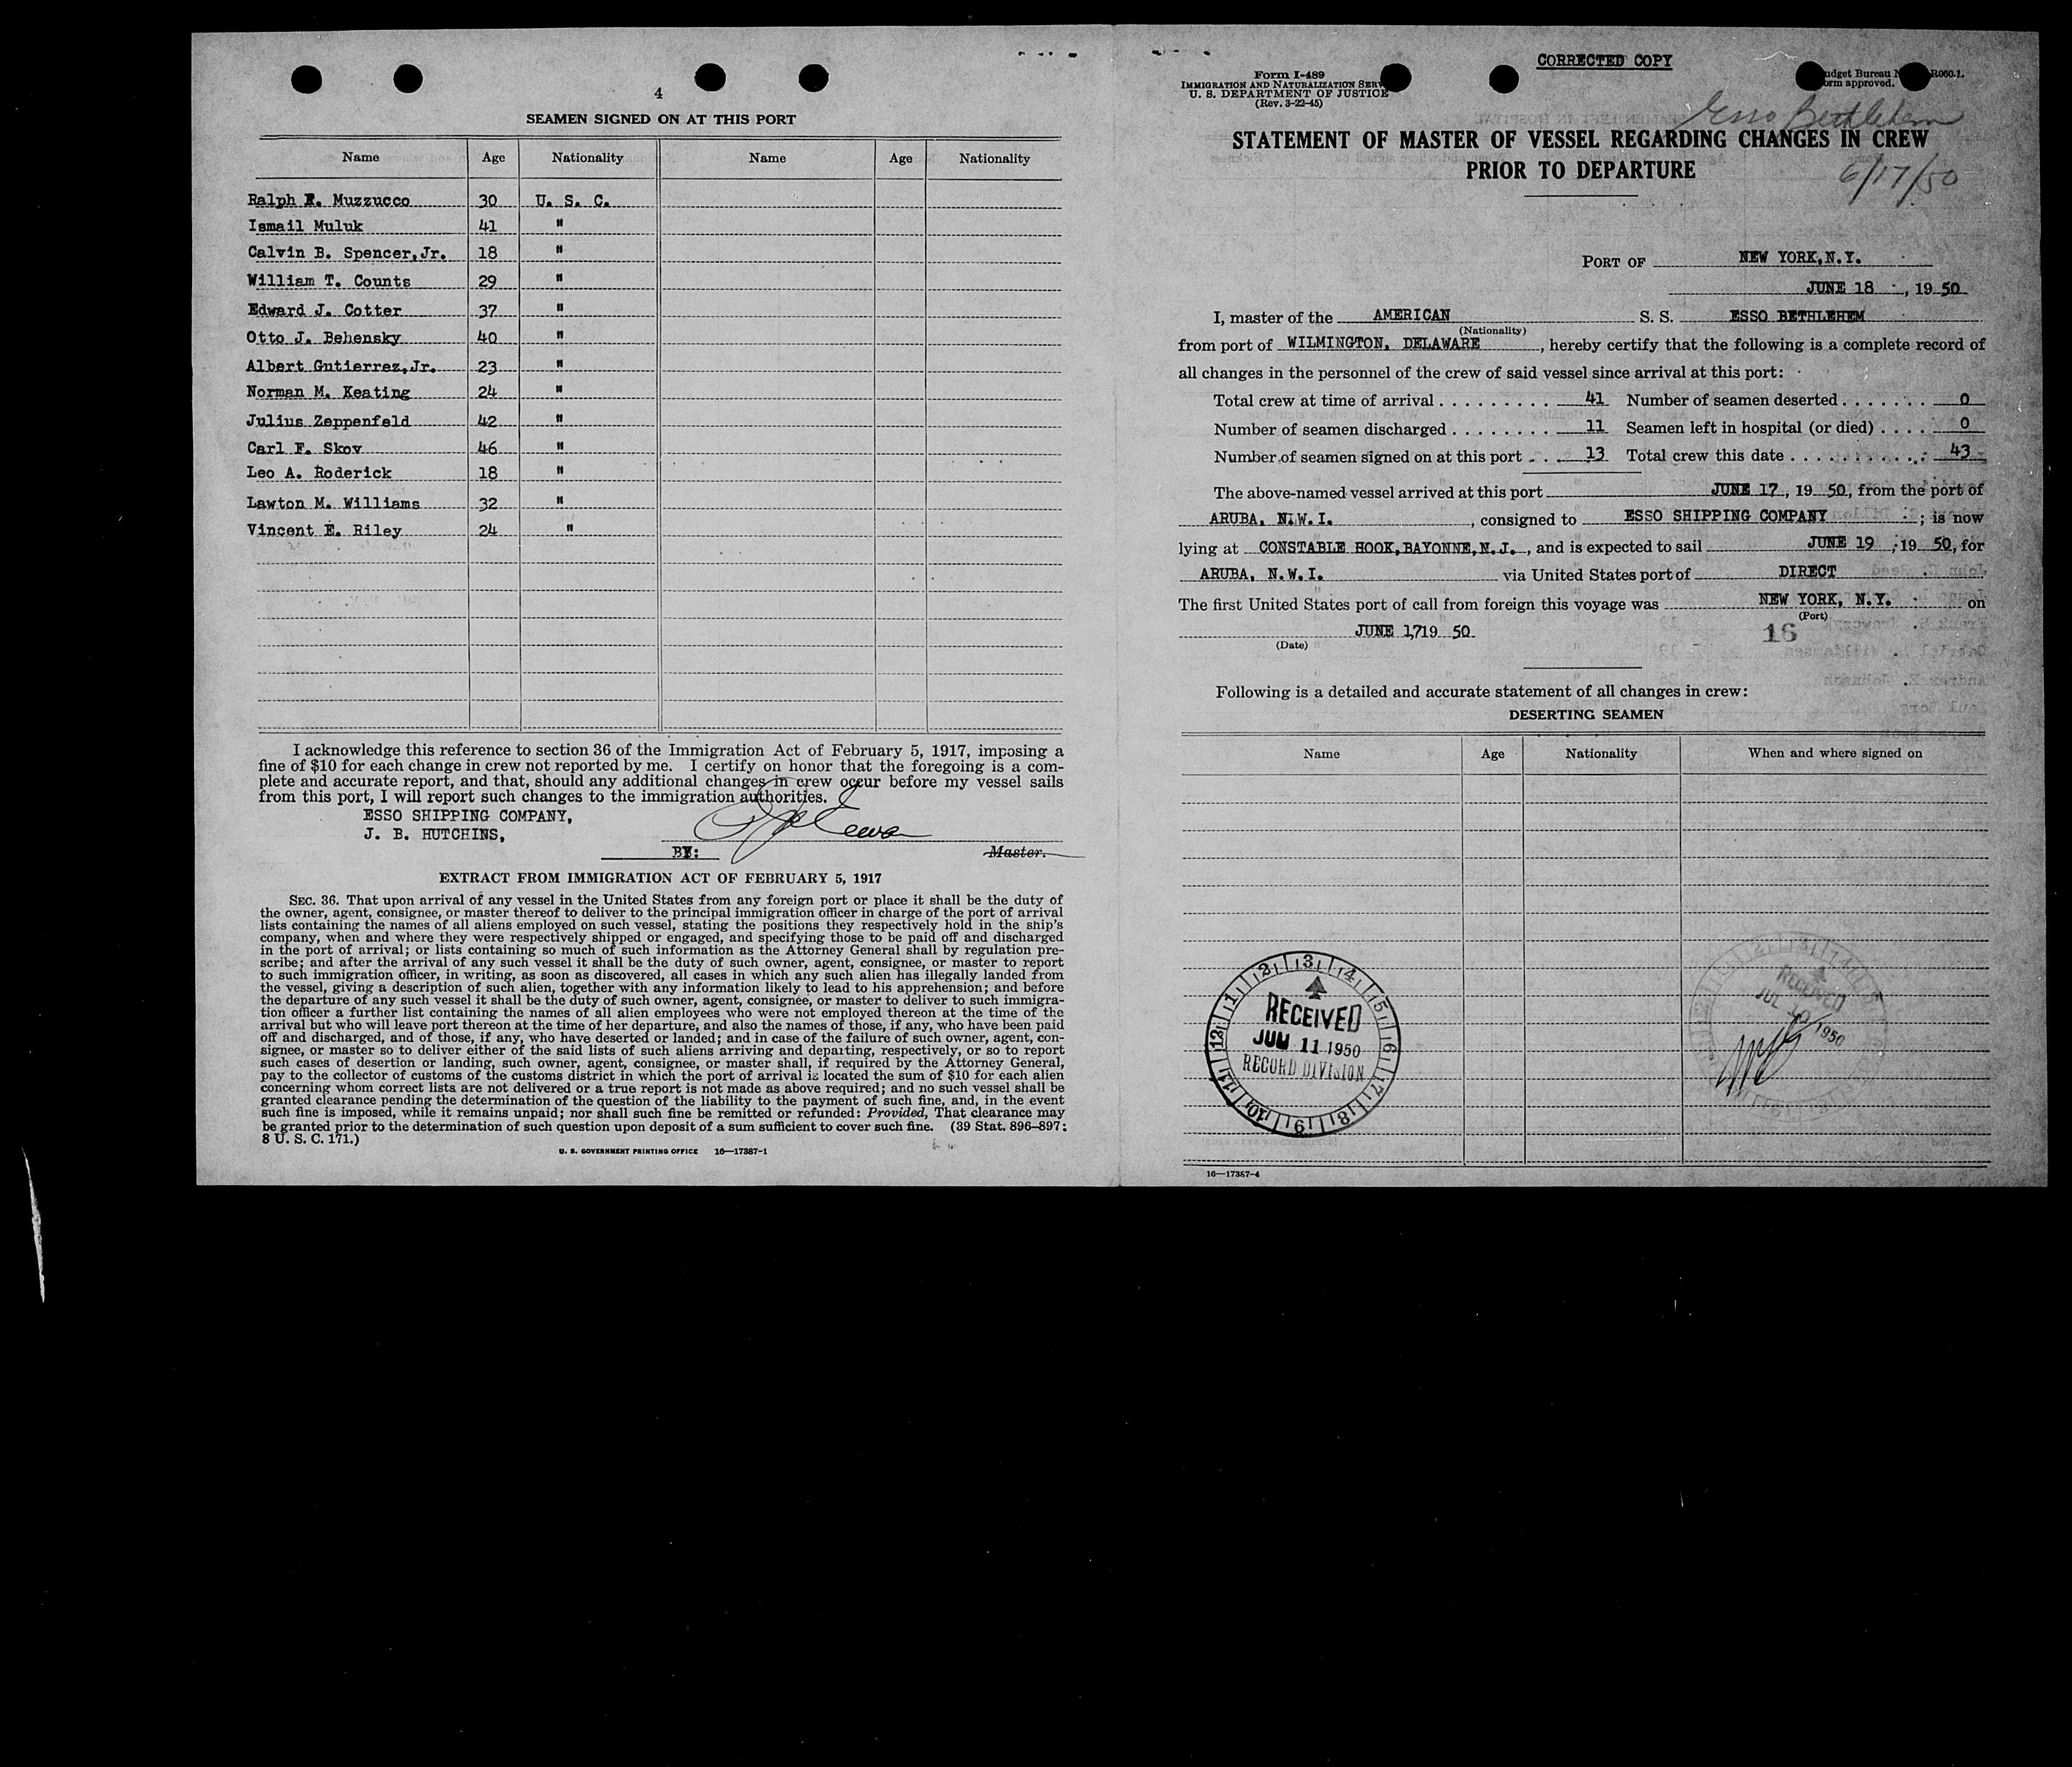 4
SEAMEN SIGNED ON AT THIS PORT
Name Age Nationality Name Age Nationality
Ralph E. Muzzucco 30 U. S. C.
Ismail Muluk 41 "
Calvin B. Spencer,Jr. 18 "
William T. Counts 29 "
Edward J. Cotter 37 "
Otto J. Behensky 40 "
Albert Gutierrez,Jr. 23 "
Norman M. Keating 24 "
Julius Zeppenfeld 42 "
Carl F. Skov 46 "
Leo A. Roderick 18 "
Lawton M. Williams 32 "
Vincent E. Riley 24 "
I acknowledge this reference to section 36 of the Immigration Act of February 5, 1917, imposing a
fine of $10 for each change in crew not reported by me. I certify on honor that the foregoing is a com-
plete and accurate report, and that, should any additional changes in crew occur before my vessel sails
from this port, I will report such changes to the immigration authorities.
ESSO SHIPPING COMPANY,
J. B. HUTCHINS,
BY: Master.
EXTRACT FROM IMMIGRATION ACT OF FEBRUARY 5, 1917
SEC. 36. That upon arrival of any vessel in the United States from any foreign port or place it shall be the duty of
the owner, agent, consignee, or master thereof to deliver to the principal immigration officer in charge of the port of arrival
lists containing the names of all aliens employed on such vessel, stating the positions they respectively hold in the ship's
company, when and where they were respectively shipped or engaged, and specifying those to be paid off and discharged
in the port of arrival; or lists containing so much of such information as the Attorney General shall by regulation pre-
scribe; and after the arrival of any such vessel it shall be the duty of such owner, agent, consignee, or master to report
to such immigration officer, in writing, as soon as discovered, all cases in which any such alien has illegally landed from
the vessel, giving a description of such alien, together with any information likely to lead to his apprehension; and before
the departure of any such vessel it shall be the duty of such owner, agent, consignee, or master to deliver to such immigra-
tion officer a further list containing the names of all alien employees who were not employed thereon at the time of the
arrival but who will leave port thereon at the time of her departure, and also the names of those, if any, who have been paid
off and discharged, and of those, if any, who have deserted or landed; and in case of the failure of such owner, agent, con-
signee, or master so to deliver either of the said lists of such aliens arriving and departing, respectively, or so to report
such cases of desertion or landing, such owner, agent, consignee, or master shall, if required by the Attorney General,
pay to the collector of customs of the customs district in which the port of arrival is located the sum of $10 for each alien
concerning whom correct lists are not delivered or a true report is not made as above required; and no such vessel shall be
granted clearance pending the determination of the question of the liability to the payment of such fine, and, in the event
such fine is imposed, while it remains unpaid; nor shall such fine be remitted or refunded: Provided, That clearance may
be granted prior to the determination of such question upon deposit of a sum sufficient to cover such fine. (39 Stat. 896–897;
8 U. S. C. 171.)
U. S. GOVERNMENT PRINTING OFFICE 16—17387-1
CORRECTED COPY
Form I-489
IMMIGRATION AND NATURALIZATION SERV
U. S. DEPARTMENT OF JUSTICE
(Rev. 3-22-45)
udget Bureau R060.1.
orm approved.
Esso Bethlehem
STATEMENT OF MASTER OF VESSEL REGARDING CHANGES IN CREW
PRIOR TO DEPARTURE
6/17/50
PORT OF NEW YORK,N.Y.
JUNE 18, 1950
I, master of the AMERICAN S. S. ESSO BETHLEHEM
(Nationality)
from port of WILMINGTON, DELAWARE, hereby certify that the following is a complete record of
all changes in the personnel of the crew of said vessel since arrival at this port:
Total crew at time of arrival 41 Number of seamen deserted 0
Number of seamen discharged 11 Seamen left in hospital (or died) 0
Number of seamen signed on at this port 13 Total crew this date 43
The above-named vessel arrived at this port JUNE 17, 1950, from the port of
ARUBA, N.W.I., consigned to ESSO SHIPPING COMPANY; is now
lying at CONSTABLE HOOK,BAYONNE,N.J., and is expected to sail JUNE 19, 1950, for
ARUBA, N.W.I. via United States port of DIRECT
The first United States port of call from foreign this voyage was NEW YORK, N.Y. on
(Port)
JUNE 17,1950
16
(Date)
Following is a detailed and accurate statement of all changes in crew:
DESERTING SEAMEN
Name Age Nationality When and where signed on
RECEIVED
11 1950
RECORD DIVISION
RECEIVED
JUL 1950
16—17387-4